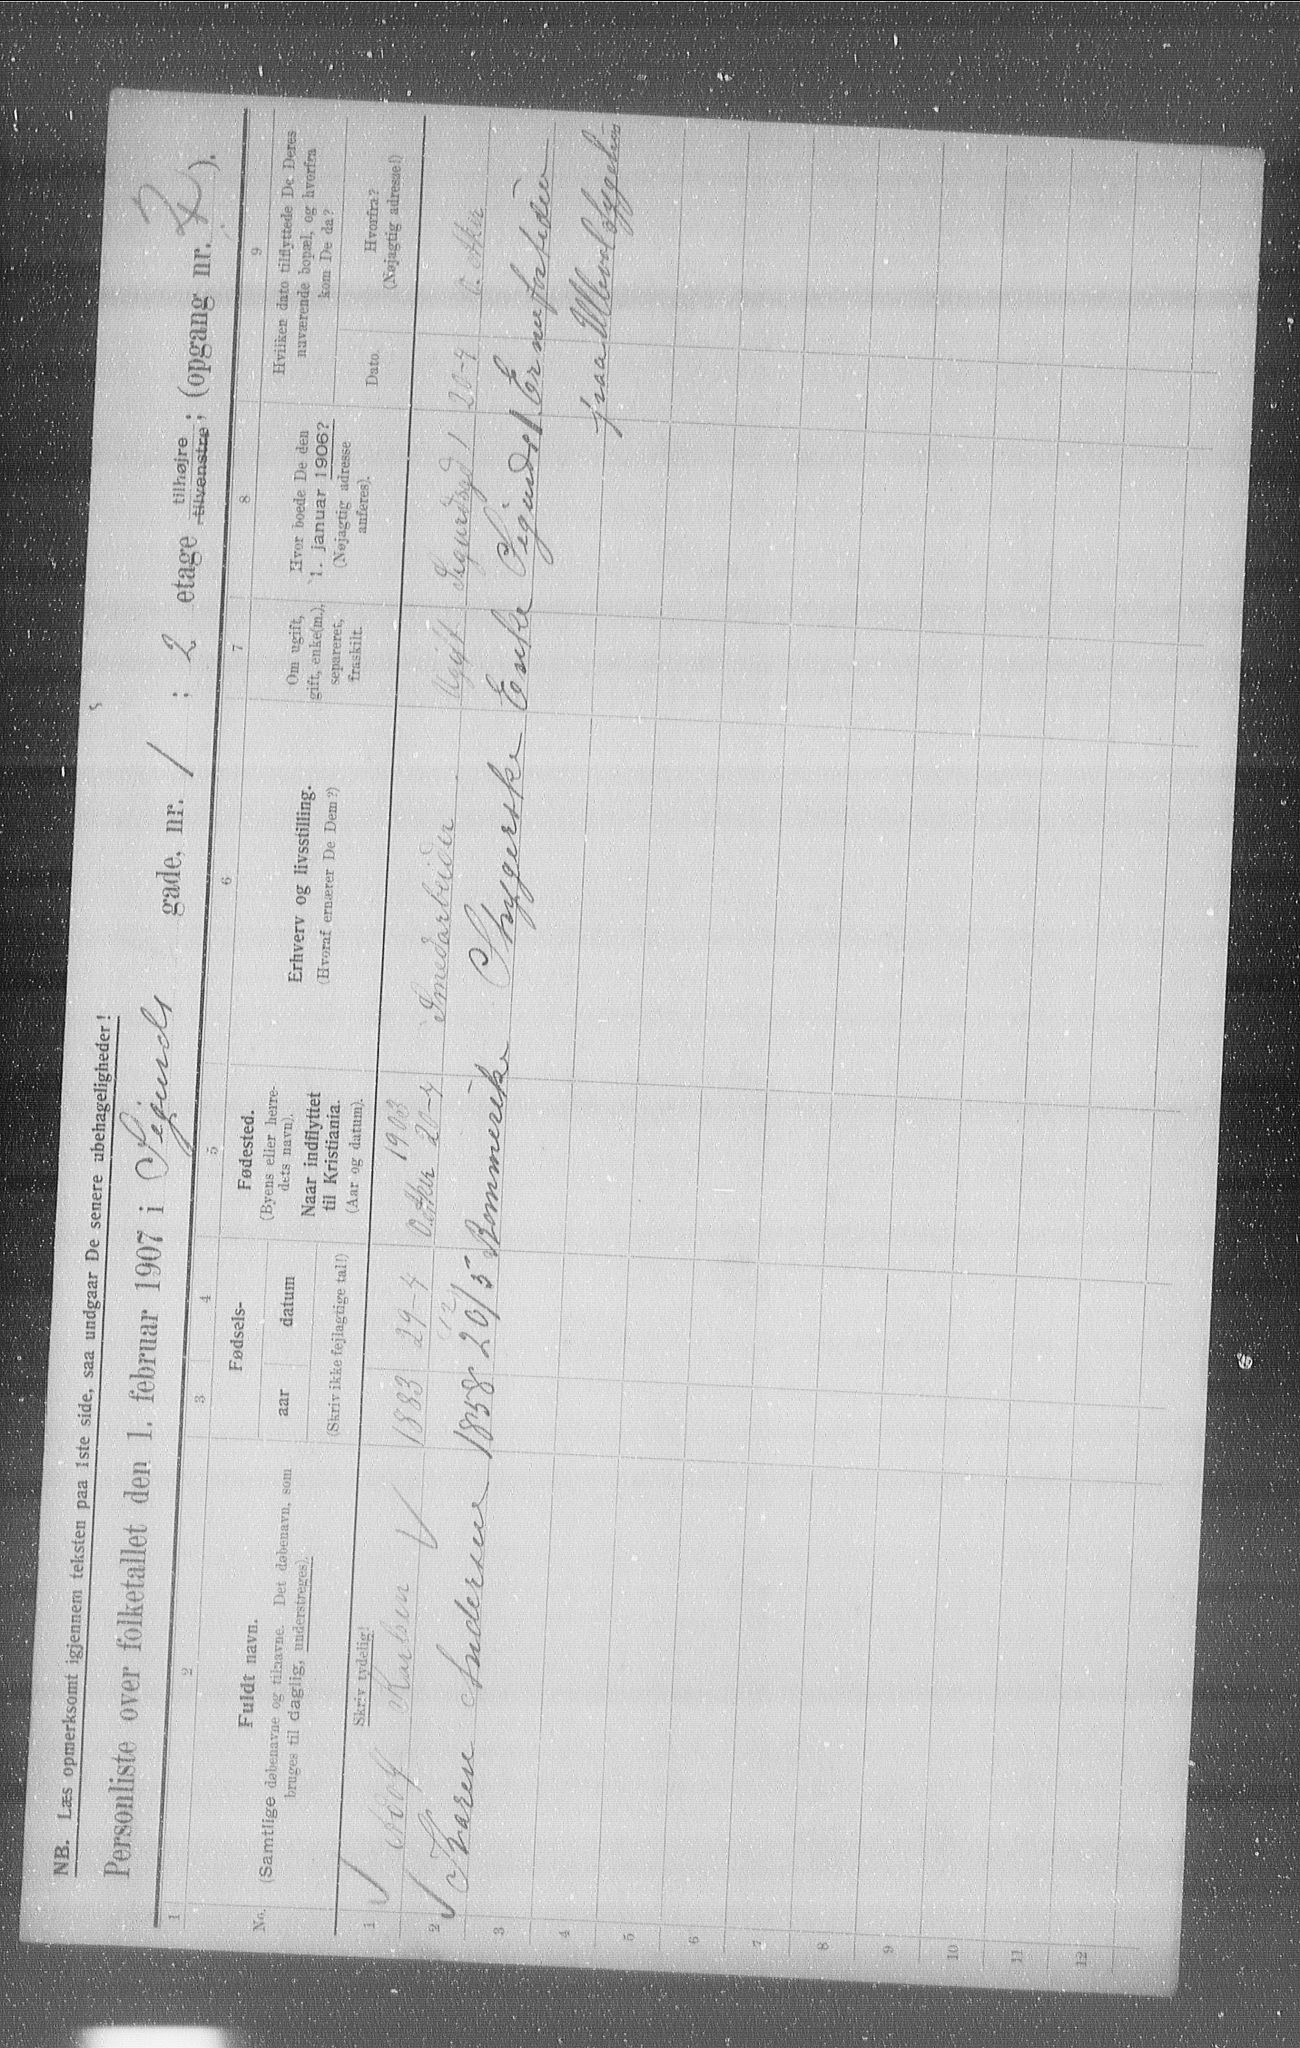 NB. Læs opmerksomt igjennem teksten paa 1ste side, saa undgaar De senere ubehageligheder!
Personliste over folketallet den 1. februar 1907 i Sigurds gade, nr. 1 ; 2 etage tilhøjre tilvenstre; (opgang nr. ).
1 2 3 4 5 6 7 8 9
No.
Fuldt navn.
(Samtlige døbenavne og tilnavne. Det døbenavn, som
bruges til daglig, understreges).
Skriv tydelig!
Fødsels-
aar datum
(Skriv ikke fejlagtige tal!)
Fødested.
(Byens eller herre-
dets navn).
Naar indflyttet
til Kristiania.
(Aar og datum).
Erhverv og livsstilling.
(Hvoraf ernærer De Dem?)
Om ugift,
gift, enke(m.),
separeret,
fraskilt.
Hvor boede De den
1. januar 1906?
(Nøjagtig adresse
anføres).
Hvilken dato tilflyttede De Deres
nuværende bopæl, og hvorfra
kom De da?
Dato.
Hvorfra?
(Nøjagtig adresse!)
1 Adolf Karlsen 1883 29-4 1903 20-4 Smedarbeider Ugift Sigurdsgd 1 20-4
2 Karen Andersen 1838 20/5 Romerike Enke
fraa
3
4
5
6
7
8
9
10
11
12